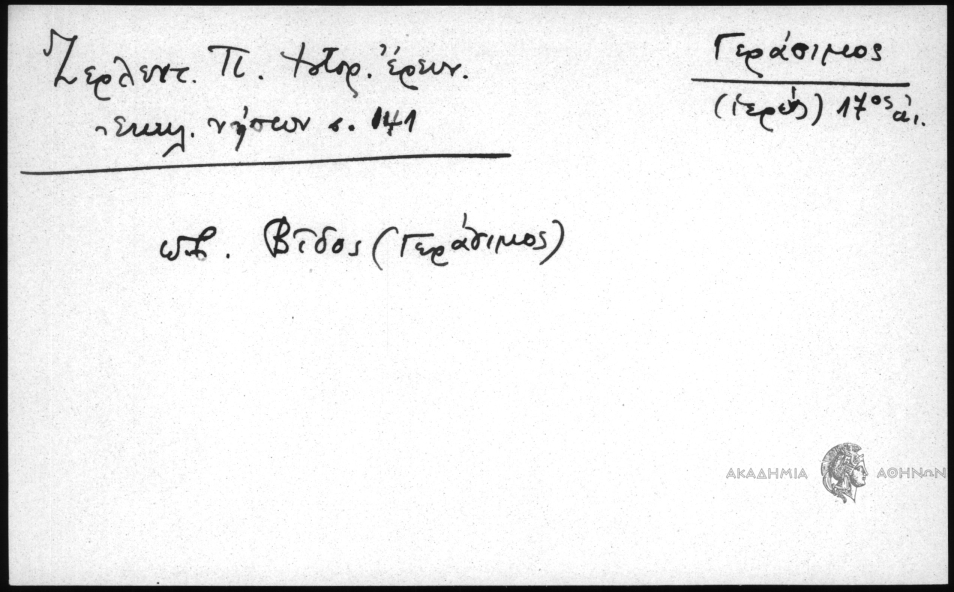 Ζερλεντ. Π. Ἱστορ. ἔρευν.
ἐκκλ. νήσων σ. 141
Γεράσιμος
(ἱερεύς) 17ος αἰ.
Βῖδος (Γεράσιμος)
ΑΚΑΔΗΜΙΑ ΑΘΗΝΩΝ